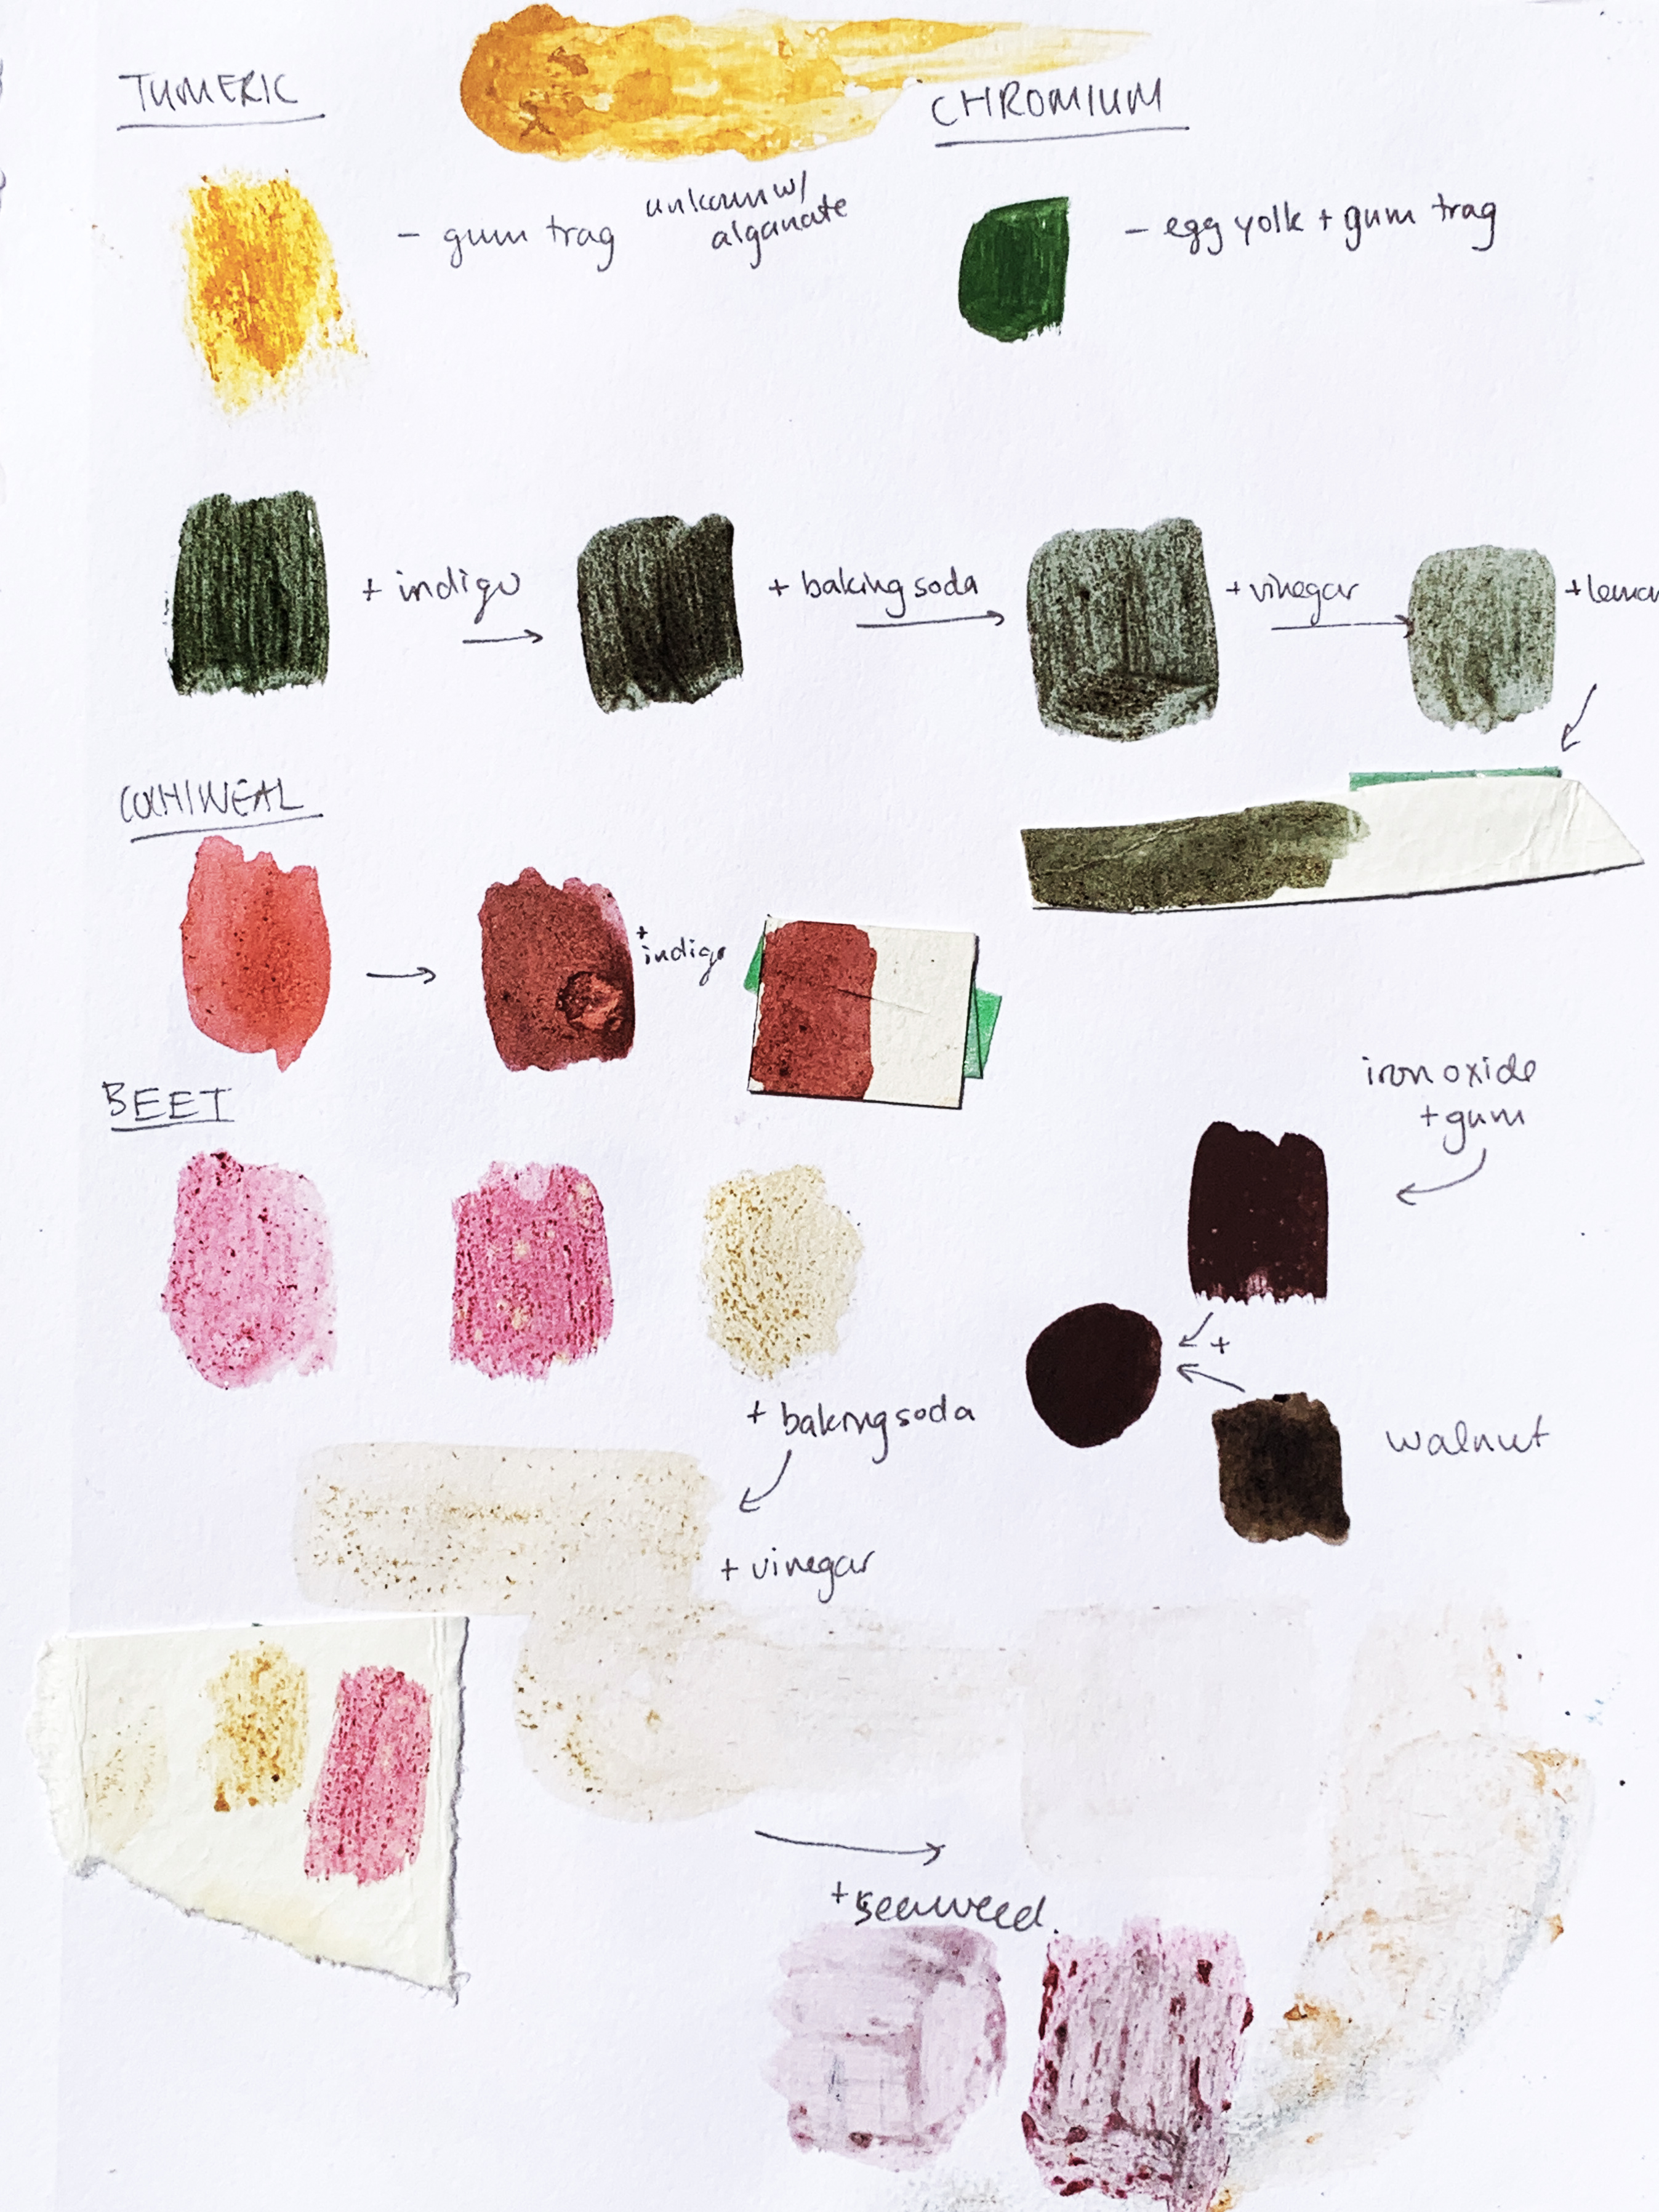 TUMERIC
CHROMIUM
- gum trag
unkown w/
alganate
- egg yolk + gum trag
+ indigo
+ baking soda
+ vinegar
COCHINEAL
+
indigo
BEET
iron oxide
+ gum
+
+ baking soda
walnut
+ vinegar
+ seaweed.